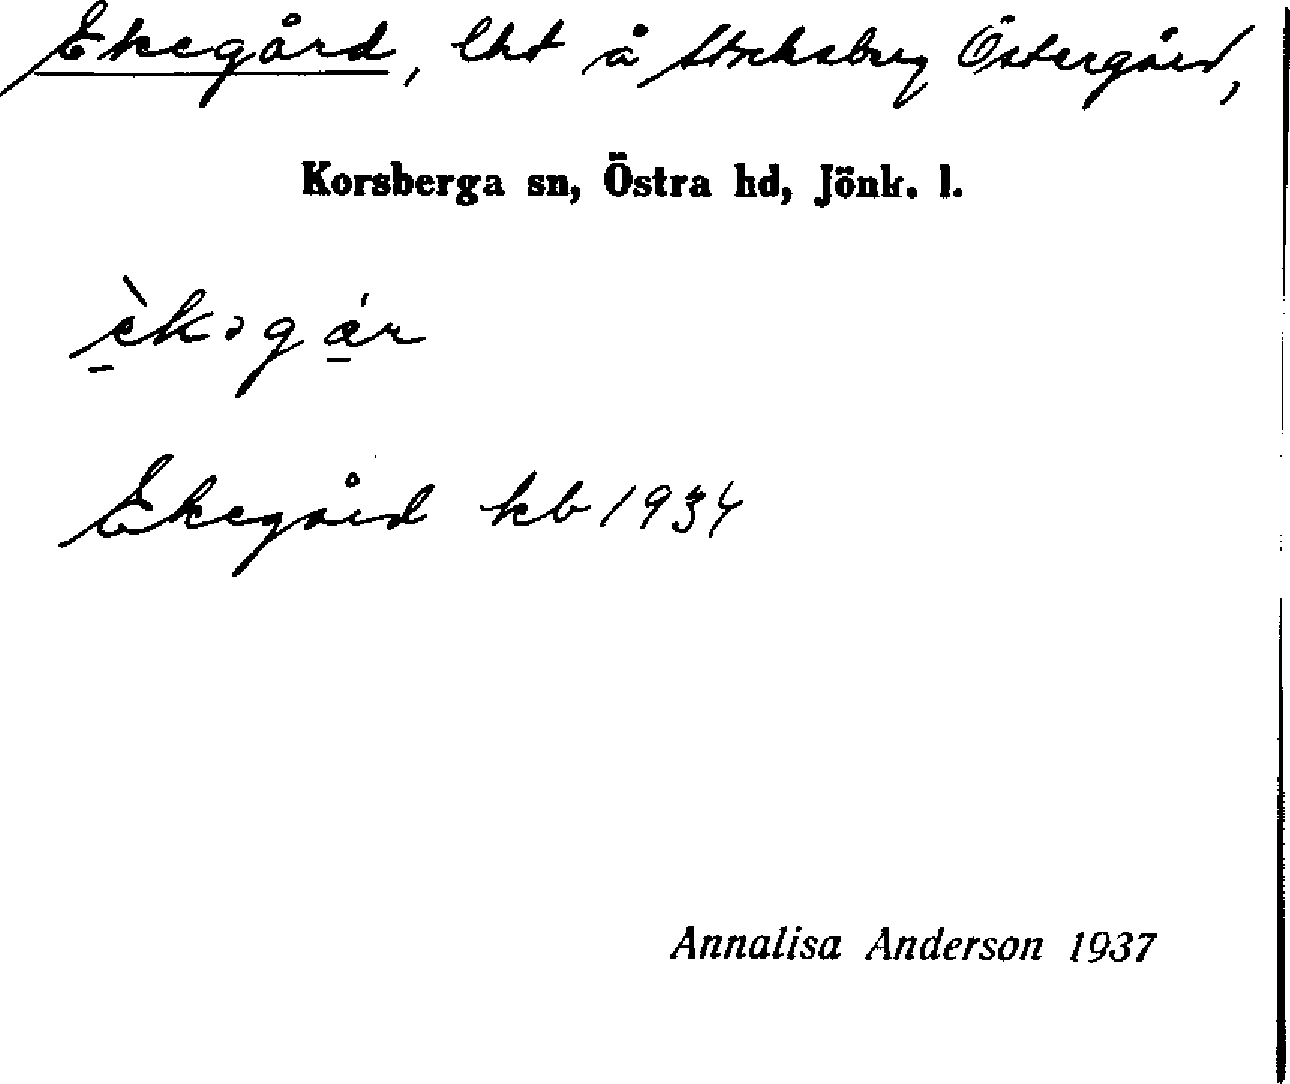 Ekegård, lht å Stocksberg Östergård,
Korsberga sn, Östra hd, Jönk. l.
è̱kəgǽ̱r
Ekegård kb 1934
Annalisa Anderson 1937